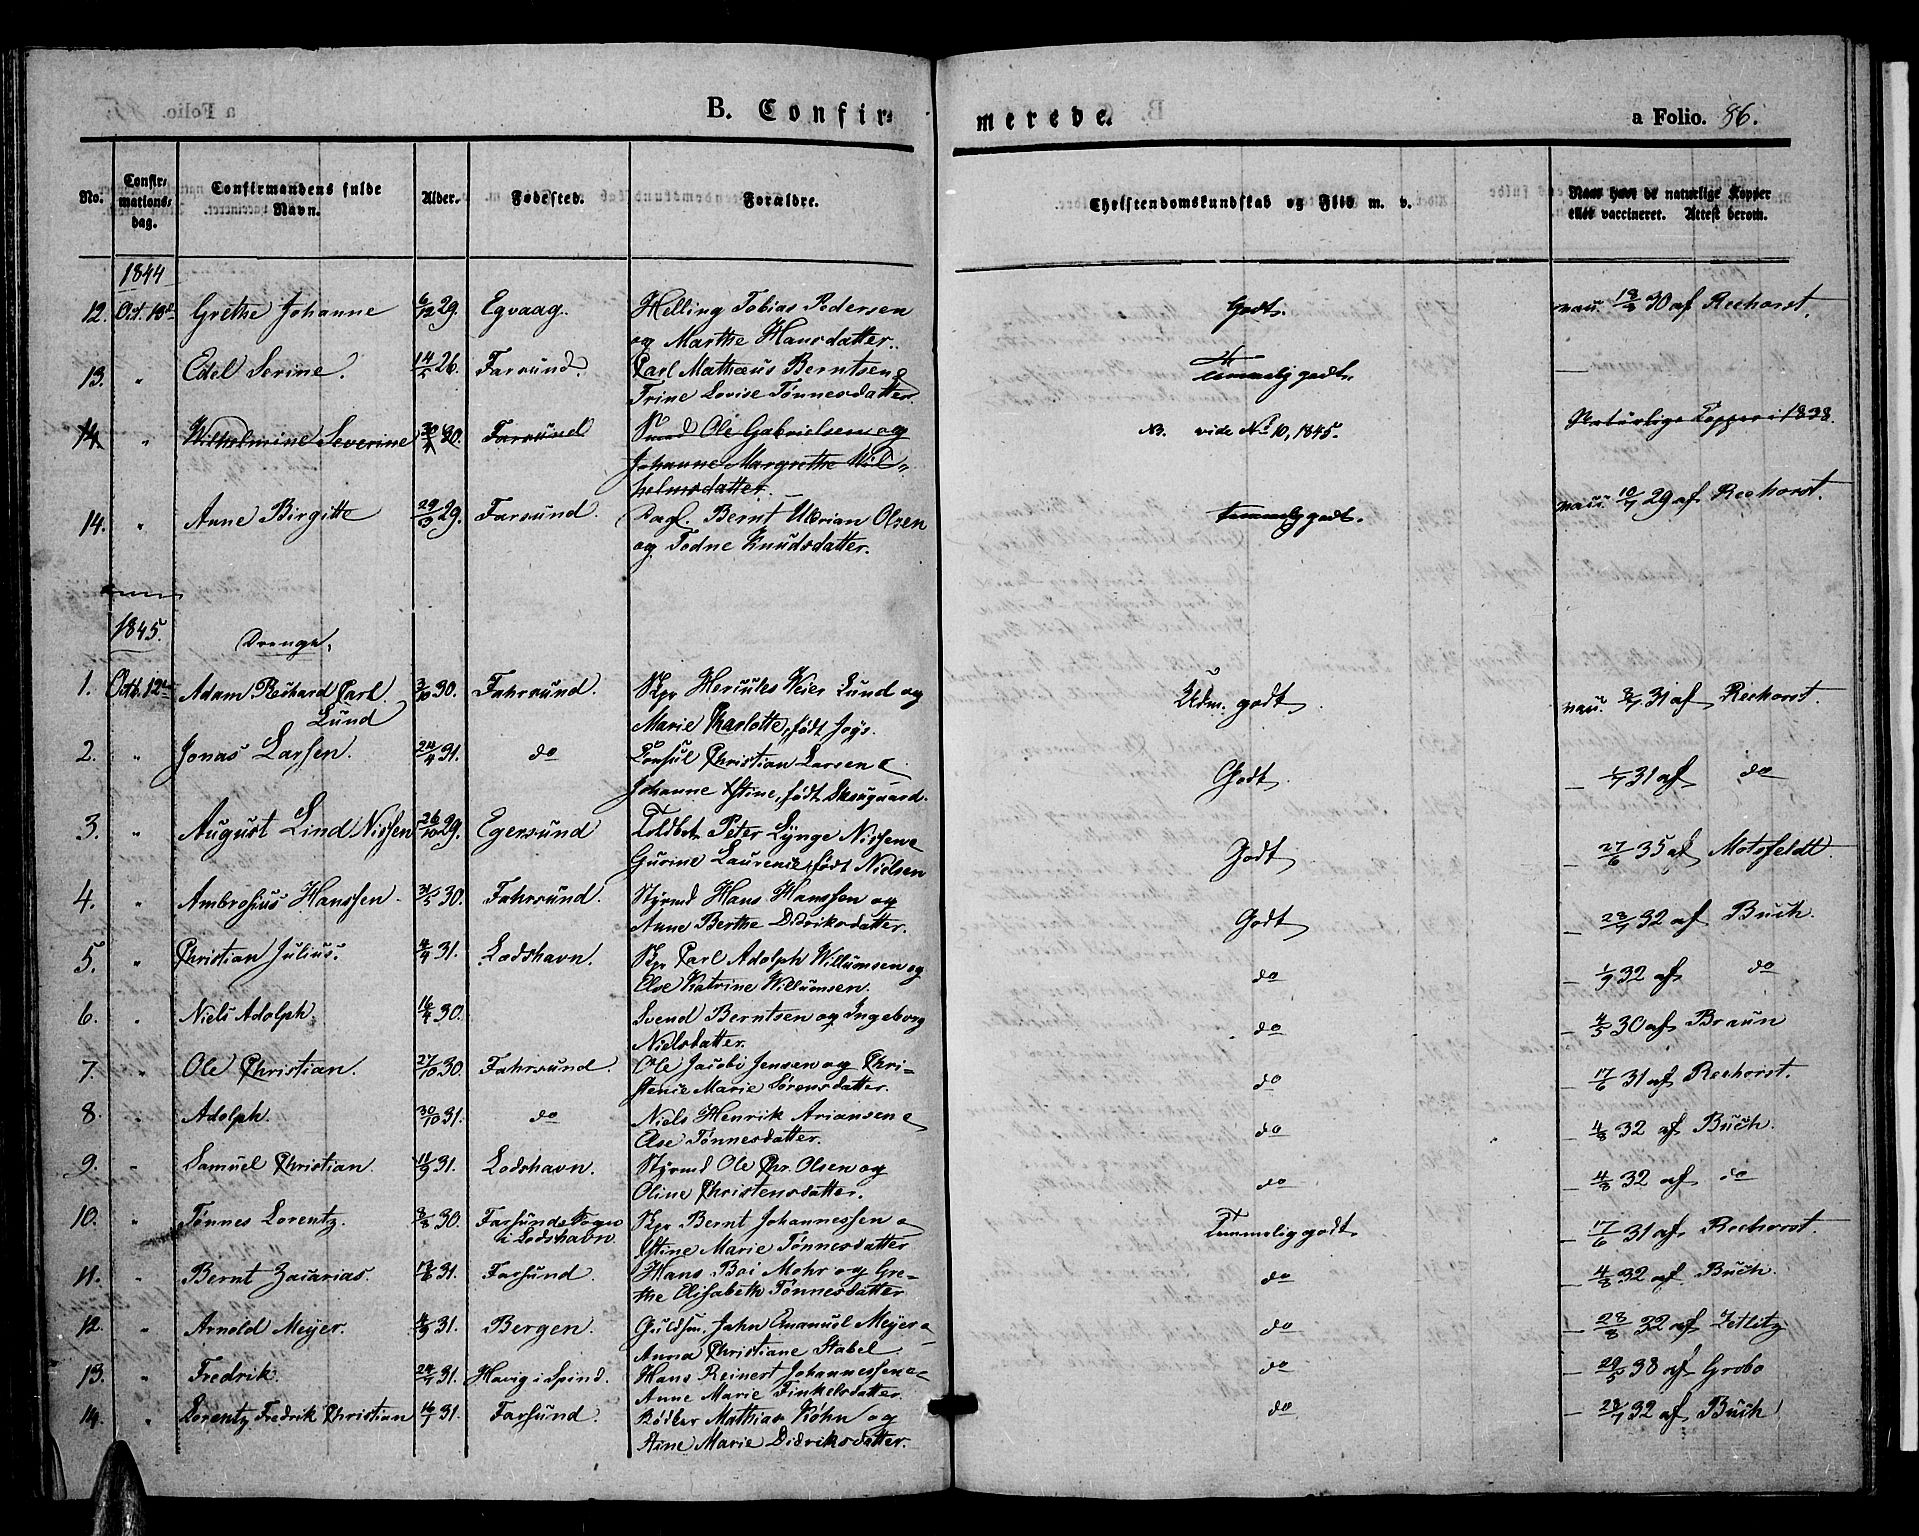 B. Confirmerede.
a Folio. 86.
No. Confirmationsdag. Confirmandens fulde Navn. Alder. Fødested. Forældre. Christendomskundskab og Flid m. v. Naar have de naturlige Kopper eller vaccineret. Attest derom.
1844
12. Oct. 13d Grethe Johanne 6/12 29. Egvaag. Helling Tobias Pedersen Godt. vau. 18/8 30 af Reehorst.
og Marthe Hansdatter.
13. " Edel Serine. 14/5 26. Farsund. Carl Mathæus Berntsen & Temmelig godt. —
Trine Lovise Tønnesdatter
14. " Wilhelmine Severine 30. Farsund Smed Ole Gabrielsen og NB. vide No 10, 1845. Naturlige Kopper i 1838.
Johanne Margrethe Wil-
helmsdatter.
14. " Anne Birgitte 29/3 29. Farsund. Dagl. Bernt Ubrian Olsen temmelig godt. vau. 10/7 29 af Reehorst.
og Todne Knudsdatter.
1845.
Drenge.
1. Octb. 12te Adam Richard Carl 3/10 30. Fahrsund. Skpr Hercules Weier Lund og Udm. godt vau. 8/7 31 af Reehorst.
Lund Marie Charlotte, født Jøys.
2. " Jonas Larsen. 24/4 31. do Consul Christian Larsen & Godt. — 1/7 31 af do
Johanne Stine, født Skougaard.
3. " August Lind Nissen 26/10 29. Egersund Toldbet. Peter Lynge Nissen & Godt — 27/6 35 af Motzfeldt.
Gurine Laurencie, født Nielsen
4. " Ambrosius Hanssen. 31/5 30. Fahrsund. Styrmd Hans Hanssen og Godt — 28/7 32 af Buch.
Anne Berthe Didriksdatter.
5. " Christian Julius. 4/4 31. Lodshavn. Skpr Carl Adolph Willumsen og do — 1/9 32 af do
Else Katrine Willumsen.
6. " Niels Adolph. 16/4 30. Svend Berntsen og Ingeborg do — 4/5 30 af Braun
Nielsdatter.
7. " Ole Christian. 27/10 30. Fahrsund. Ole Jacobi Jensen og Chri- do — 17/6 31 af Reehorst.
stenie Marie Sørensdatter.
8. " Adolph. 30/10 31. do Niels Henrik Ariansen & do — 4/8 32 af Buch.
Else Tønnesdatter.
9. " Samuel Christian. 11/9 31. Lodshavn. Styrmd Ole Chr. Olsen og do — 4/8 32 af do
Oline Christensdatter.
10. " Tønnes Lorentz. 8/8 30. Farsunds Sogn Skpr Bernt Johannessen & Temmelig godt — 17/6 31 af Reehorst.
i Lodshavn Stine Marie Tønnesdatter
11. " Bernt Zacarias. 19/6 31. Farsund. Hans Boi Mohr og Gre- do — 4/8 32 af Buch.
the Elisabeth Tønnesdatter
12. " Arnold Meyer. 4/9 31. Bergen. Guldsm. John Emanuel Meyer & do — 28/8 32 af Zetlitz
Anna Christiane Stabel.
13. " Fredrik. 24/7 31. Havig i Spind. Hans Reinert Johannessen & do — 29/5 38 af Grobo
Anne Marie Finkelsdatter
14. " Lorentz Fredrik Christian 16/1 31. Farsund. Bødker Mathias Køhn og do — 28/7 32 af Buch
Aine Marie Didriksdatter.